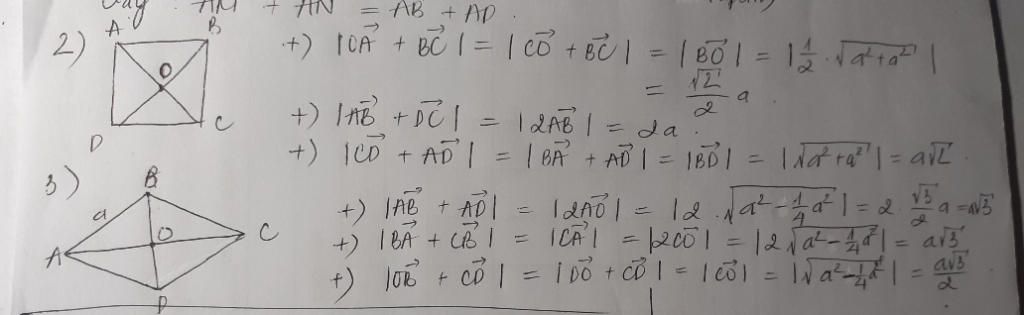 Vậy AM + AN = AB + AD.
2) A B O D C +) |OA + BC| = |CO + BC| = |BO| = |1/2 . √(a² + a²)|
= √2/2 a
+) |AB + DC| = |2AB| = 2a.
+) |CD + AD| = |BA + AD| = |BD| = |√(a² + a²)| = a√2.
3) B a A O C D
+) |AB + AD| = |2AO| = |2 . √(a² - 1/4 a²)| = 2 . √3/2 a = a√3
+) |BA + CB| = |CA| = |2CO| = |2√(a² - 1/4 a²)| = a√3
+) |OB + CD| = |DO + CD| = |CO| = |√(a² - 1/4 a²)| = a√3/2.